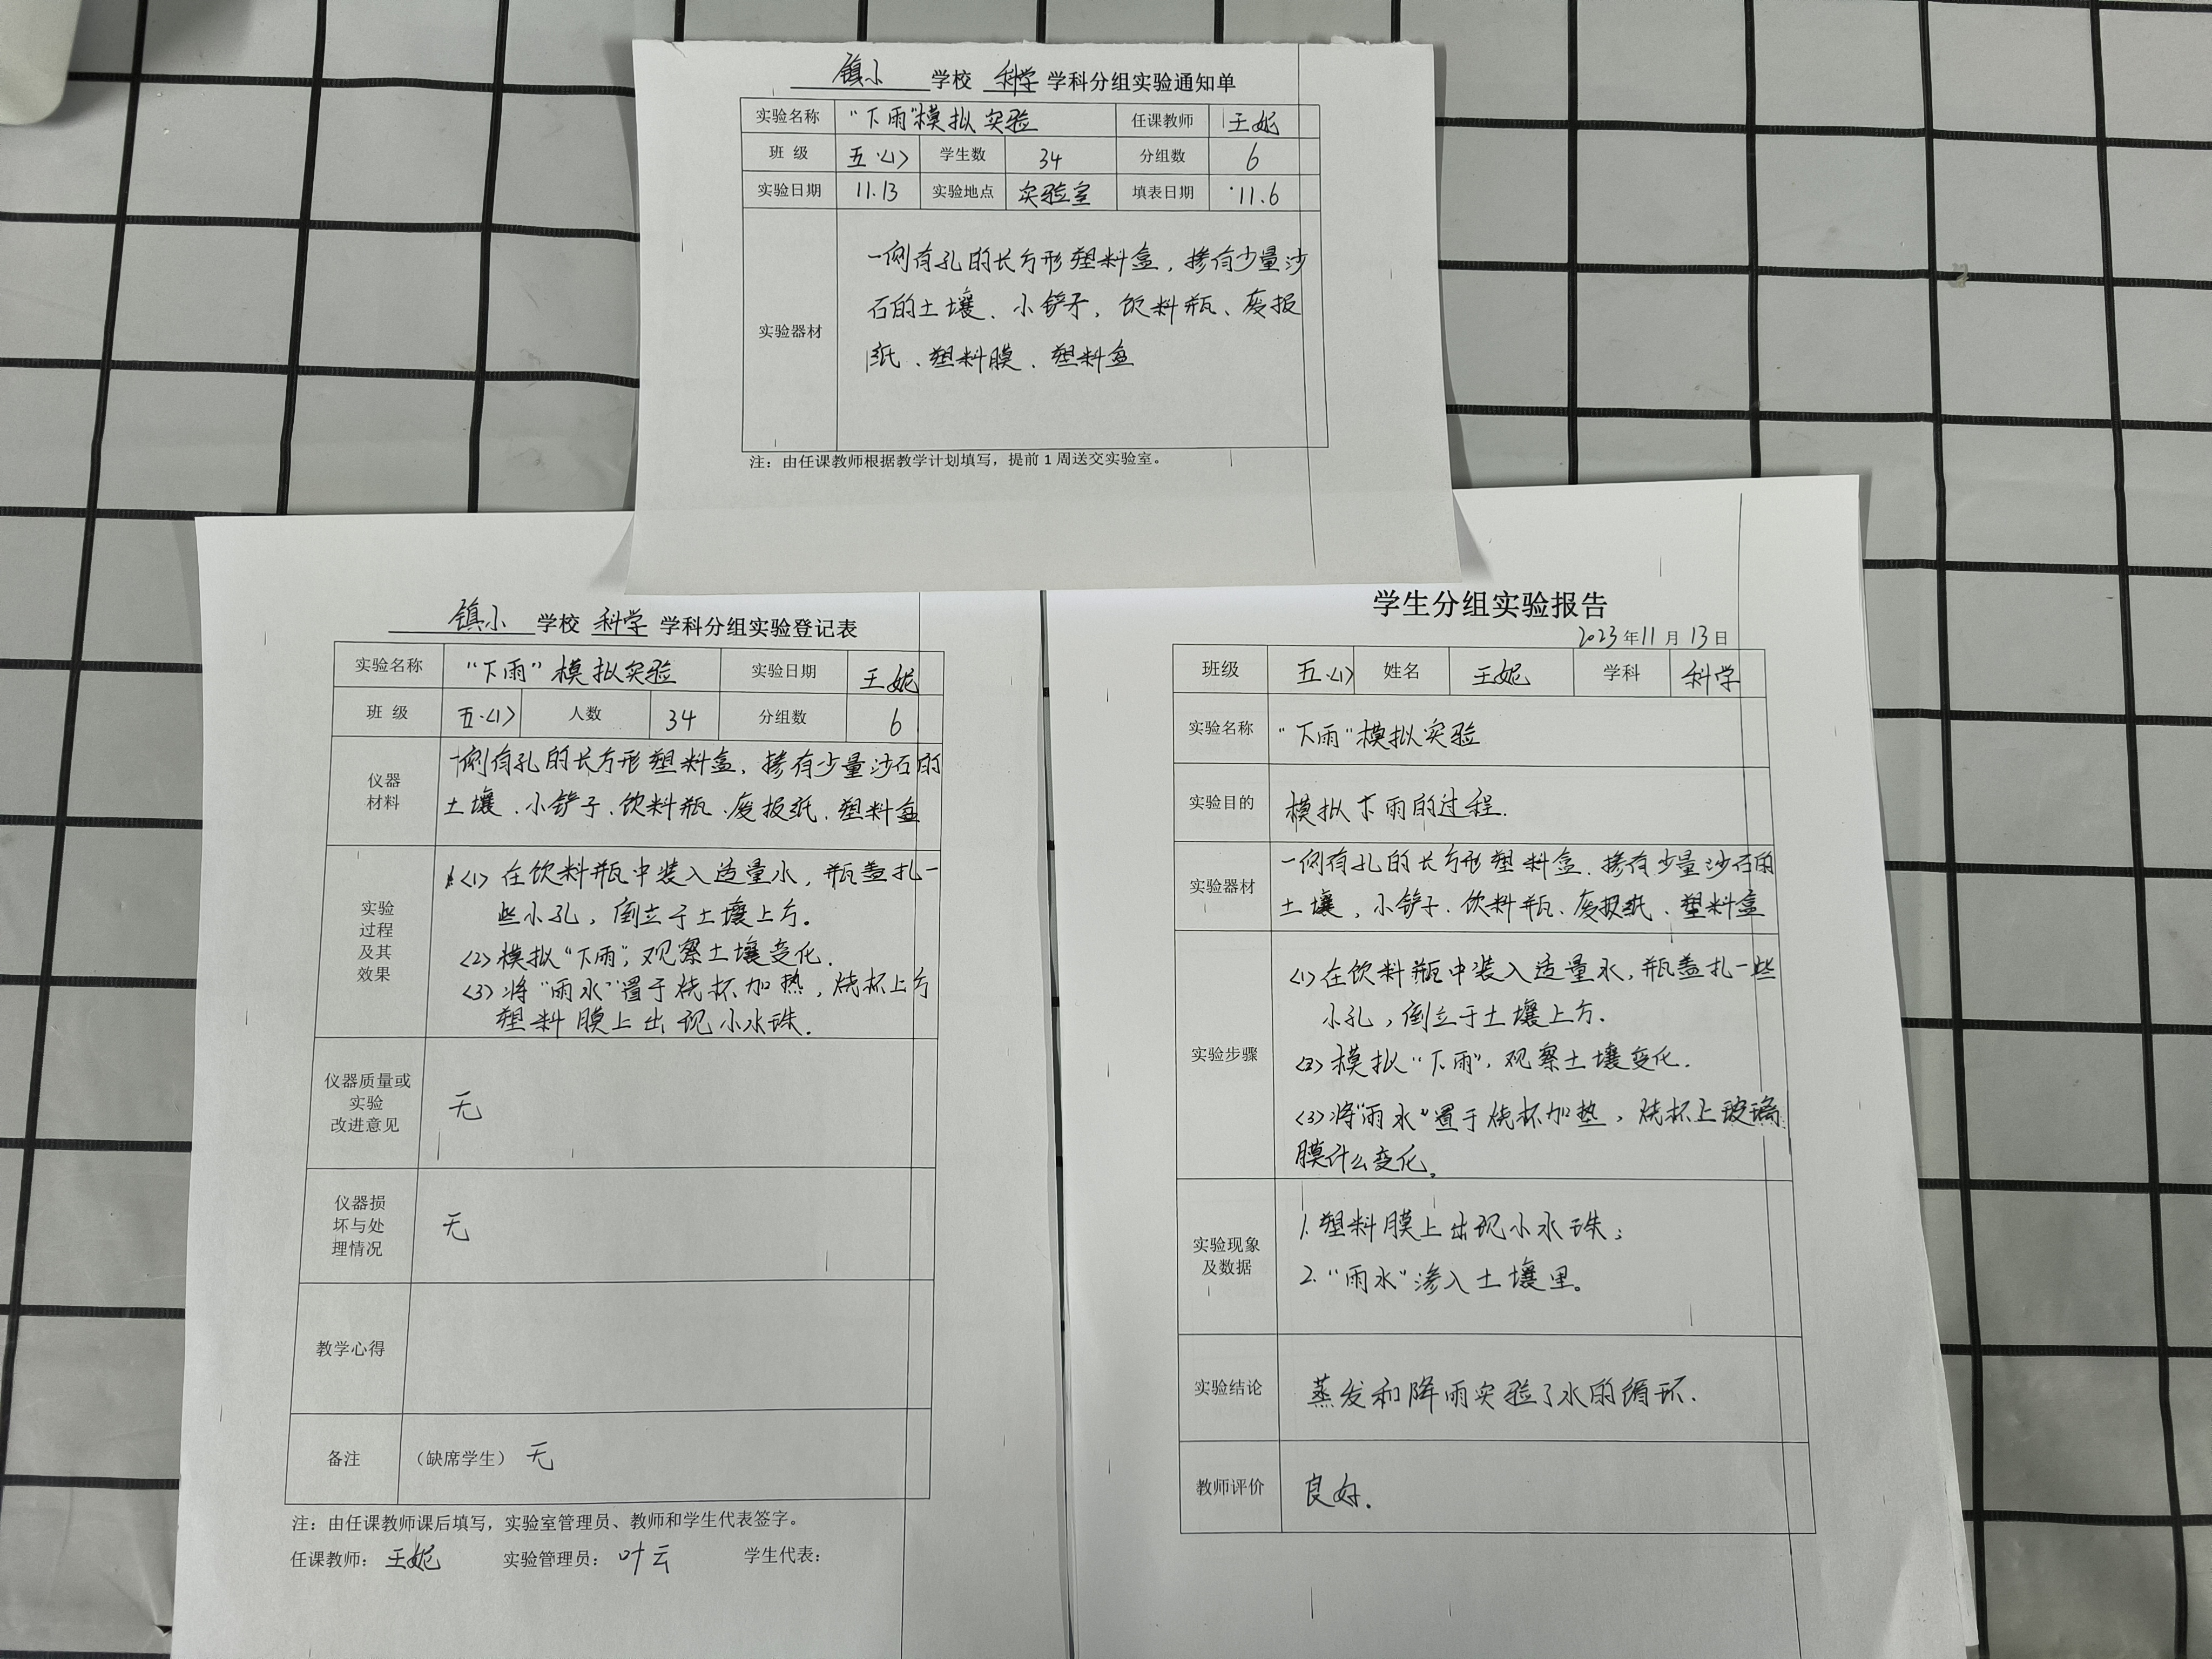 镇小 学校 科学 学科分组实验通知单
实验名称 “下雨”模拟实验 任课教师 王妮
班 级 五.<1> 学生数 34 分组数 6
实验日期 11.13 实验地点 实验室 填表日期 11.6
实验器材
一侧有孔的长方形塑料盒，掺有少量沙
石的土壤、小铲子，饮料瓶、废报
纸、塑料膜、塑料盒
注：由任课教师根据教学计划填写，提前 1 周送交实验室。
镇小 学校 科学 学科分组实验登记表
实验名称 “下雨”模拟实验 实验日期 王妮
班 级 五.<1> 人数 34 分组数 6
仪器
材料
一侧有孔的长方形塑料盒，掺有少量沙石的
土壤、小铲子、饮料瓶、废报纸、塑料盒
实验
过程
及其
效果
<1> 在饮料瓶中装入适量水，瓶盖扎一
些小孔，倒立于土壤上方.
<2> 模拟“下雨”，观察土壤变化.
<3> 将“雨水”置于烧杯加热，烧杯上方
塑料膜上出现小水珠.
仪器质量或
实验
改进意见
无
仪器损
坏与处
理情况
无
教学心得
备注 （缺席学生） 无
注：由任课教师课后填写，实验室管理员、教师和学生代表签字。
任课教师： 王妮 实验管理员： 叶云 学生代表：
学生分组实验报告
2023 年 11 月 13 日
班级 五.<1> 姓名 王妮 学科 科学
实验名称 “下雨”模拟实验
实验目的 模拟下雨的过程.
实验器材
一侧有孔的长方形塑料盒、掺有少量沙石的
土壤，小铲子、饮料瓶、废报纸、塑料盒
实验步骤
<1> 在饮料瓶中装入适量水，瓶盖扎一些
小孔，倒立于土壤上方.
<2> 模拟“下雨”，观察土壤变化.
<3> 将“雨水”置于烧杯加热，烧杯上玻璃
膜什么变化。
实验现象
及数据
1. 塑料膜上出现小水珠；
2. “雨水”渗入土壤里。
实验结论 蒸发和降雨实验了水的循环.
教师评价 良好.